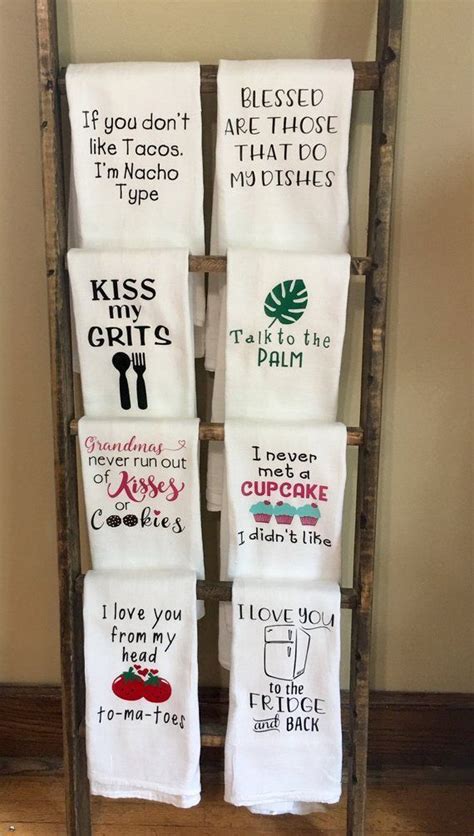 If you don't
like Tacos.
I'm Nacho
Type
BLESSED
ARE THOSE
THAT DO
MY DISHES
KISS
my
GRITS
Talk to the
PALM
Grandmas
never run out
of Kisses
or
Cookies
I never
met a
CUPCAKE
I didn't like
I love you
from my
head
to-ma-toes
I LOVE YOU
to the
FRIDGE
and BACK